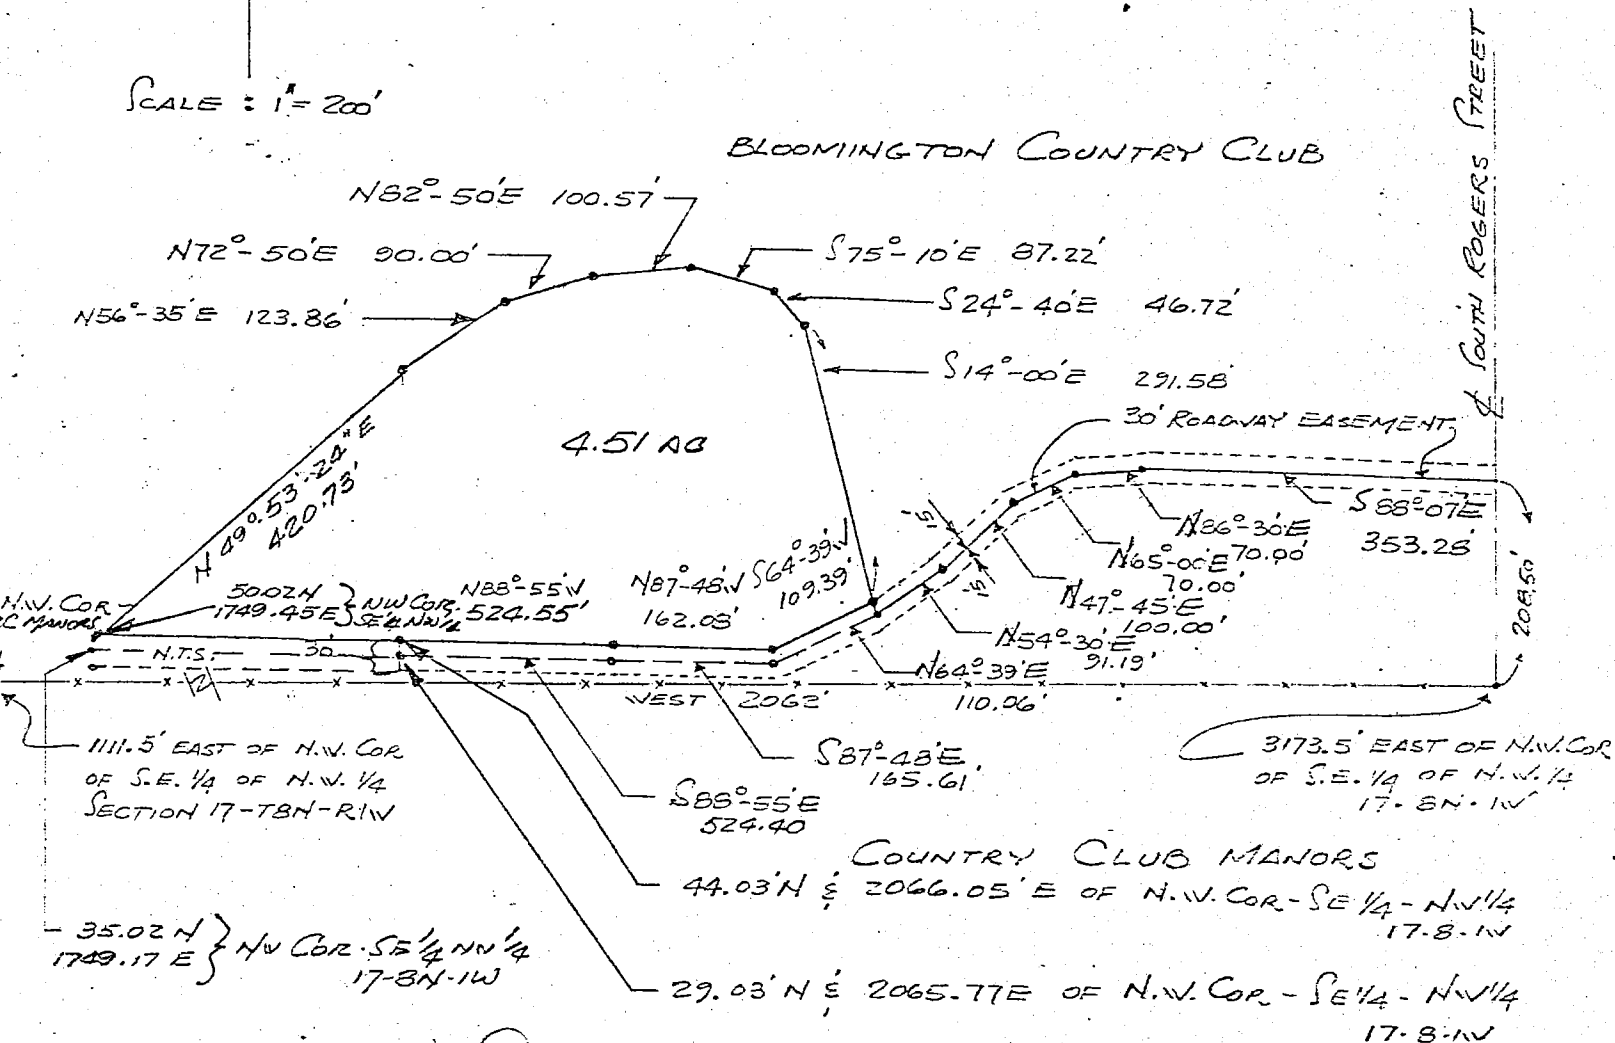 SCALE : 1" = 200'
BLOOMINGTON COUNTRY CLUB
℄ SOUTH ROGERS STREET
N82°-50'E 100.57'
N72°-50'E 90.00'
S75°-10'E 87.22'
N56°-35'E 123.86'
S24°-40'E 46.72'
S14°-00'E 291.58'
30' ROADWAY EASEMENT
4.51 AC
N 49°-53'-24"E
420.73'
15'
15'
S88°-07'E
353.28'
N86°-30'E
70.00'
N65°-00'E
70.00'
N47°-45'E
100.00'
N54°-30'E
91.19'
N64°-39'E
110.06'
208.50'
N.W. COR
CC MANORS
50.02 N
1749.45 E } NW COR.
SE¼ NW¼
N88°-55'W
524.55'
N87°-48'W
162.03'
S64°-39'W
109.39'
N.T.S.
30'
WEST 2062'
1111.5' EAST OF N.W. COR
OF S.E. 1/4 OF N.W. 1/4
SECTION 17-T8N-R1W
S87°-48'E
165.61'
S88°-55'E
524.40
3173.5' EAST OF N.W. COR
OF S.E. 1/4 OF N.W. 1/4
17-8N-1W
COUNTRY CLUB MANORS
44.03'N & 2066.05'E OF N.W. COR-SE 1/4-NW 1/4
17-8-1W
35.02 N
1749.17 E } NW COR. SE 1/4 NW 1/4
17-8N-1W
29.03'N & 2065.77E OF N.W. COR-SE 1/4-NW 1/4
17-8-1W